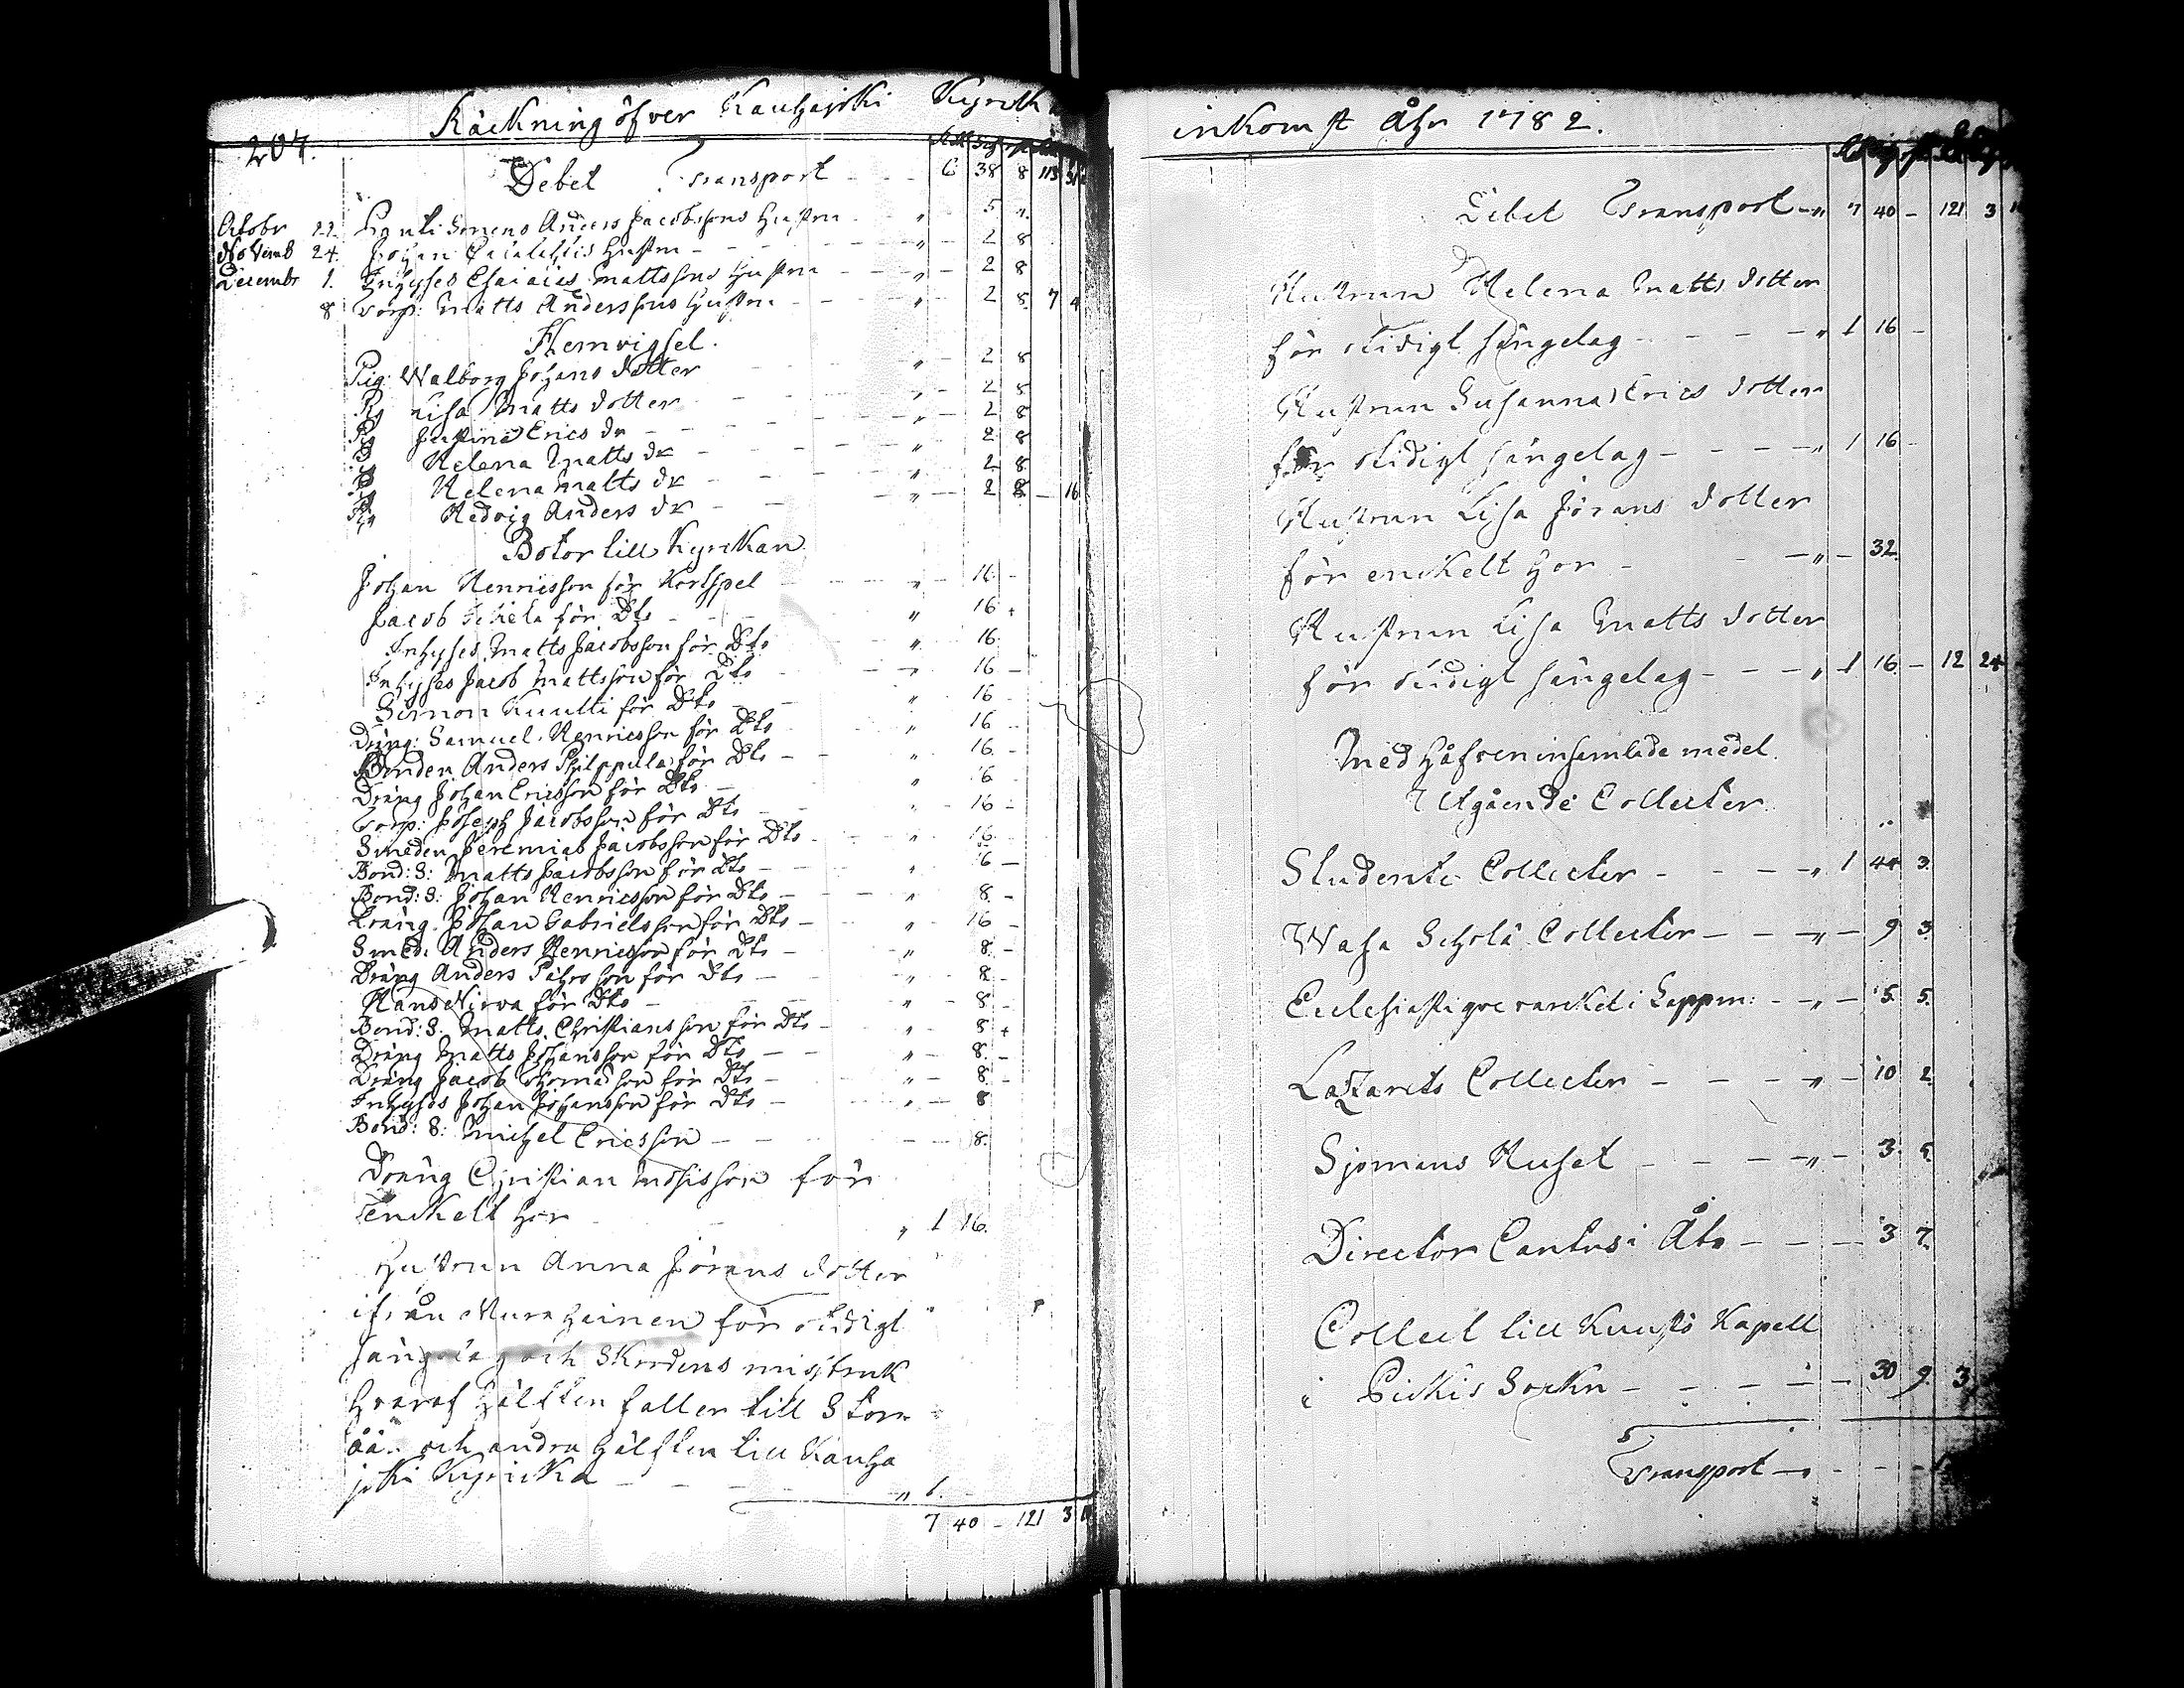 Räckning öfver Kauhajoki Kyrck
207.
Debet Transport - - - 6 38 8 113 31
Octobr 22. Anders Jacobssons Hustru - - „ - 5 „
Novemb 24. Johan Hustru - - - „ - 2 8
Decembr 1. Inhyses Esaias Mattssons Hustru - - - „ - 2 8
8 Torp: Matts Anderssons Hustru - - - „ 2 8 7 4
Hemvigsel.
Pig: Walborg Johans dotter - - „ - 2 8
Pig Lisa Matts dotter - - „ - 2 8
Pig Justina Erics dr - - - „ - 2 8
P Helena Matts dr - - - „ 2 8
P Helena Matts dr - - „ 2 8
Pig Hedvig Anders dr - - „ - 2 8 - 16
Böter till Kyrckan
Johan Henricsson för Kortspel - - „ - 16 -
Jacob för Dto - - „ 16
Inhyses Matts Jacobsson för Dto - „ 16
Inhyses Jacob Mattsson för Dto - - 16 -
Simon för Dto - - „ 16 -
Dräng: Samuel Henricsson för Dto - „ 16 -
Bonden Anders Philppula för Dto - - „ 16 -
Dräng Johan Ericsson för Dto - „ 16 -
Torp: Joseph Jacobsson för Dto - „ - 16 -
Smeden Jeremias Jacobsson för Dto - „ 16
Bond: S: Matts Jacobsson för Dto - „ 16 -
Bond: S: Johan Henricsson för Dto - - „ 8 -
Dräng Johan Gabrielsson för Dto - „ 16 -
Smed: Anders Henricsson för Dto - „ 8 -
Dräng Anders för Dto - „ 8 -
Hans för Dto - - „ - 8 -
Bond: S: Matts Christiansson för Dto - „ - 8
Dräng Matts Johansson för Dto - - „ - 8 -
Dräng Jacob Thomasson för Dto - „ - 8 -
Inhyses Johan Johansson för Dto - „ - 8
Bond: S: Michel Ericsson - - - - 8.
Dräng Christian Mosisson för
enckelt hor - „ 1 16.
Hustrun Anna Jörans dotter
ifrån för otidigt
sängelag och Skrudens missbruk
hvaraf hälften faller till Stor
åå.. och andra hälften till Kauha
joki Kyricka - - - - „ 1.
7 40 - 121 3
inkomst Åhr 1782.
Debet Transport - „ 7 40 - 121 3
Hustrun Helena Matts dotter
för otidigt sängelag - - - - „ 1 16 -
Hustrun Susanna Erics dotter
för otidigt sängelag - - - - „ 1 16 -
Hustrun Lisa Jörans dotter
för enckelt hor - - - „ - 32.
Hustrun Lisa Matts dotter
för otidigt sängelag - - - „ 1 16 - 12 24
Med Håfven insamlade medel.
Utgående Collecter
Studente Collecter - - - - „ 1 44 3.
Wasa Schola Collecter - - - „ - 9 3.
Ecclesiastique i Lappm: - - „ - 5. 5.
Lazarets Collecter - - - - „ - 10 2.
Sjömans Huset - - - - „ - 3. 5.
Director Cantus i Åbo - - - - 3 7.
Collect till Kustö Kapell
i Pickis Sockn - - - - - 30 9. 3
Transport - - - -